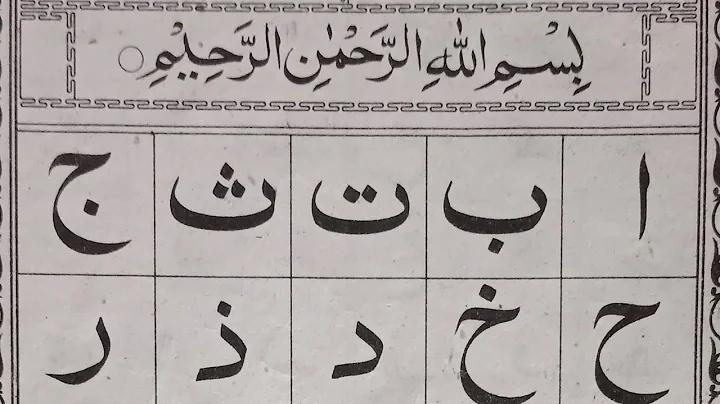 بِسْمِ اللّٰهِ الرَّحْمٰنِ الرَّحِيْمِ
ا ب ت ث ج
ح خ د ذ ر